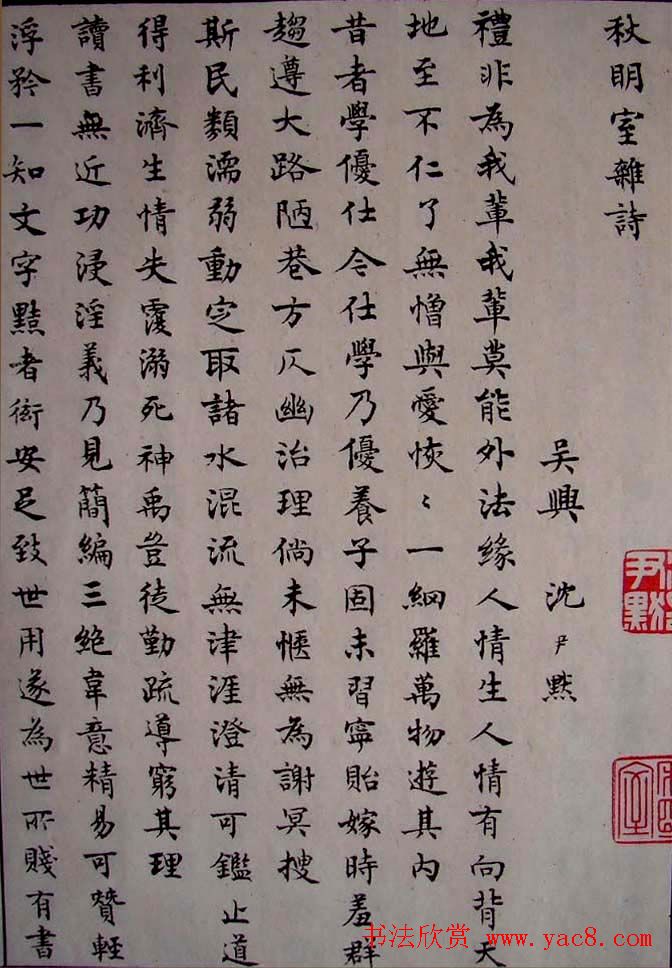 秋明室雜詩
吴興 沈尹默
禮非為我輩我輩莫能外法緣人情生人情有向背天
地至不仁了無憎與愛恢〻一網羅萬物遊其內
昔者學優仕今仕學乃優養子固未習寧貽嫁時羞群
趨遵大路陋巷方仄幽治理倘未愜無為謝冥搜
斯民類濡弱動定取諸水混流無津涯澄清可鑑止道
得利濟生情失覆溺死神禹豈徒勤疏導窮其理
讀書無近功浸淫義乃見簡編三絕韋意精易可贊輕
浮矜一知文字黠者衒安足致世用遂為世所賤有書
尹默
书法欣赏 www.yac8.com